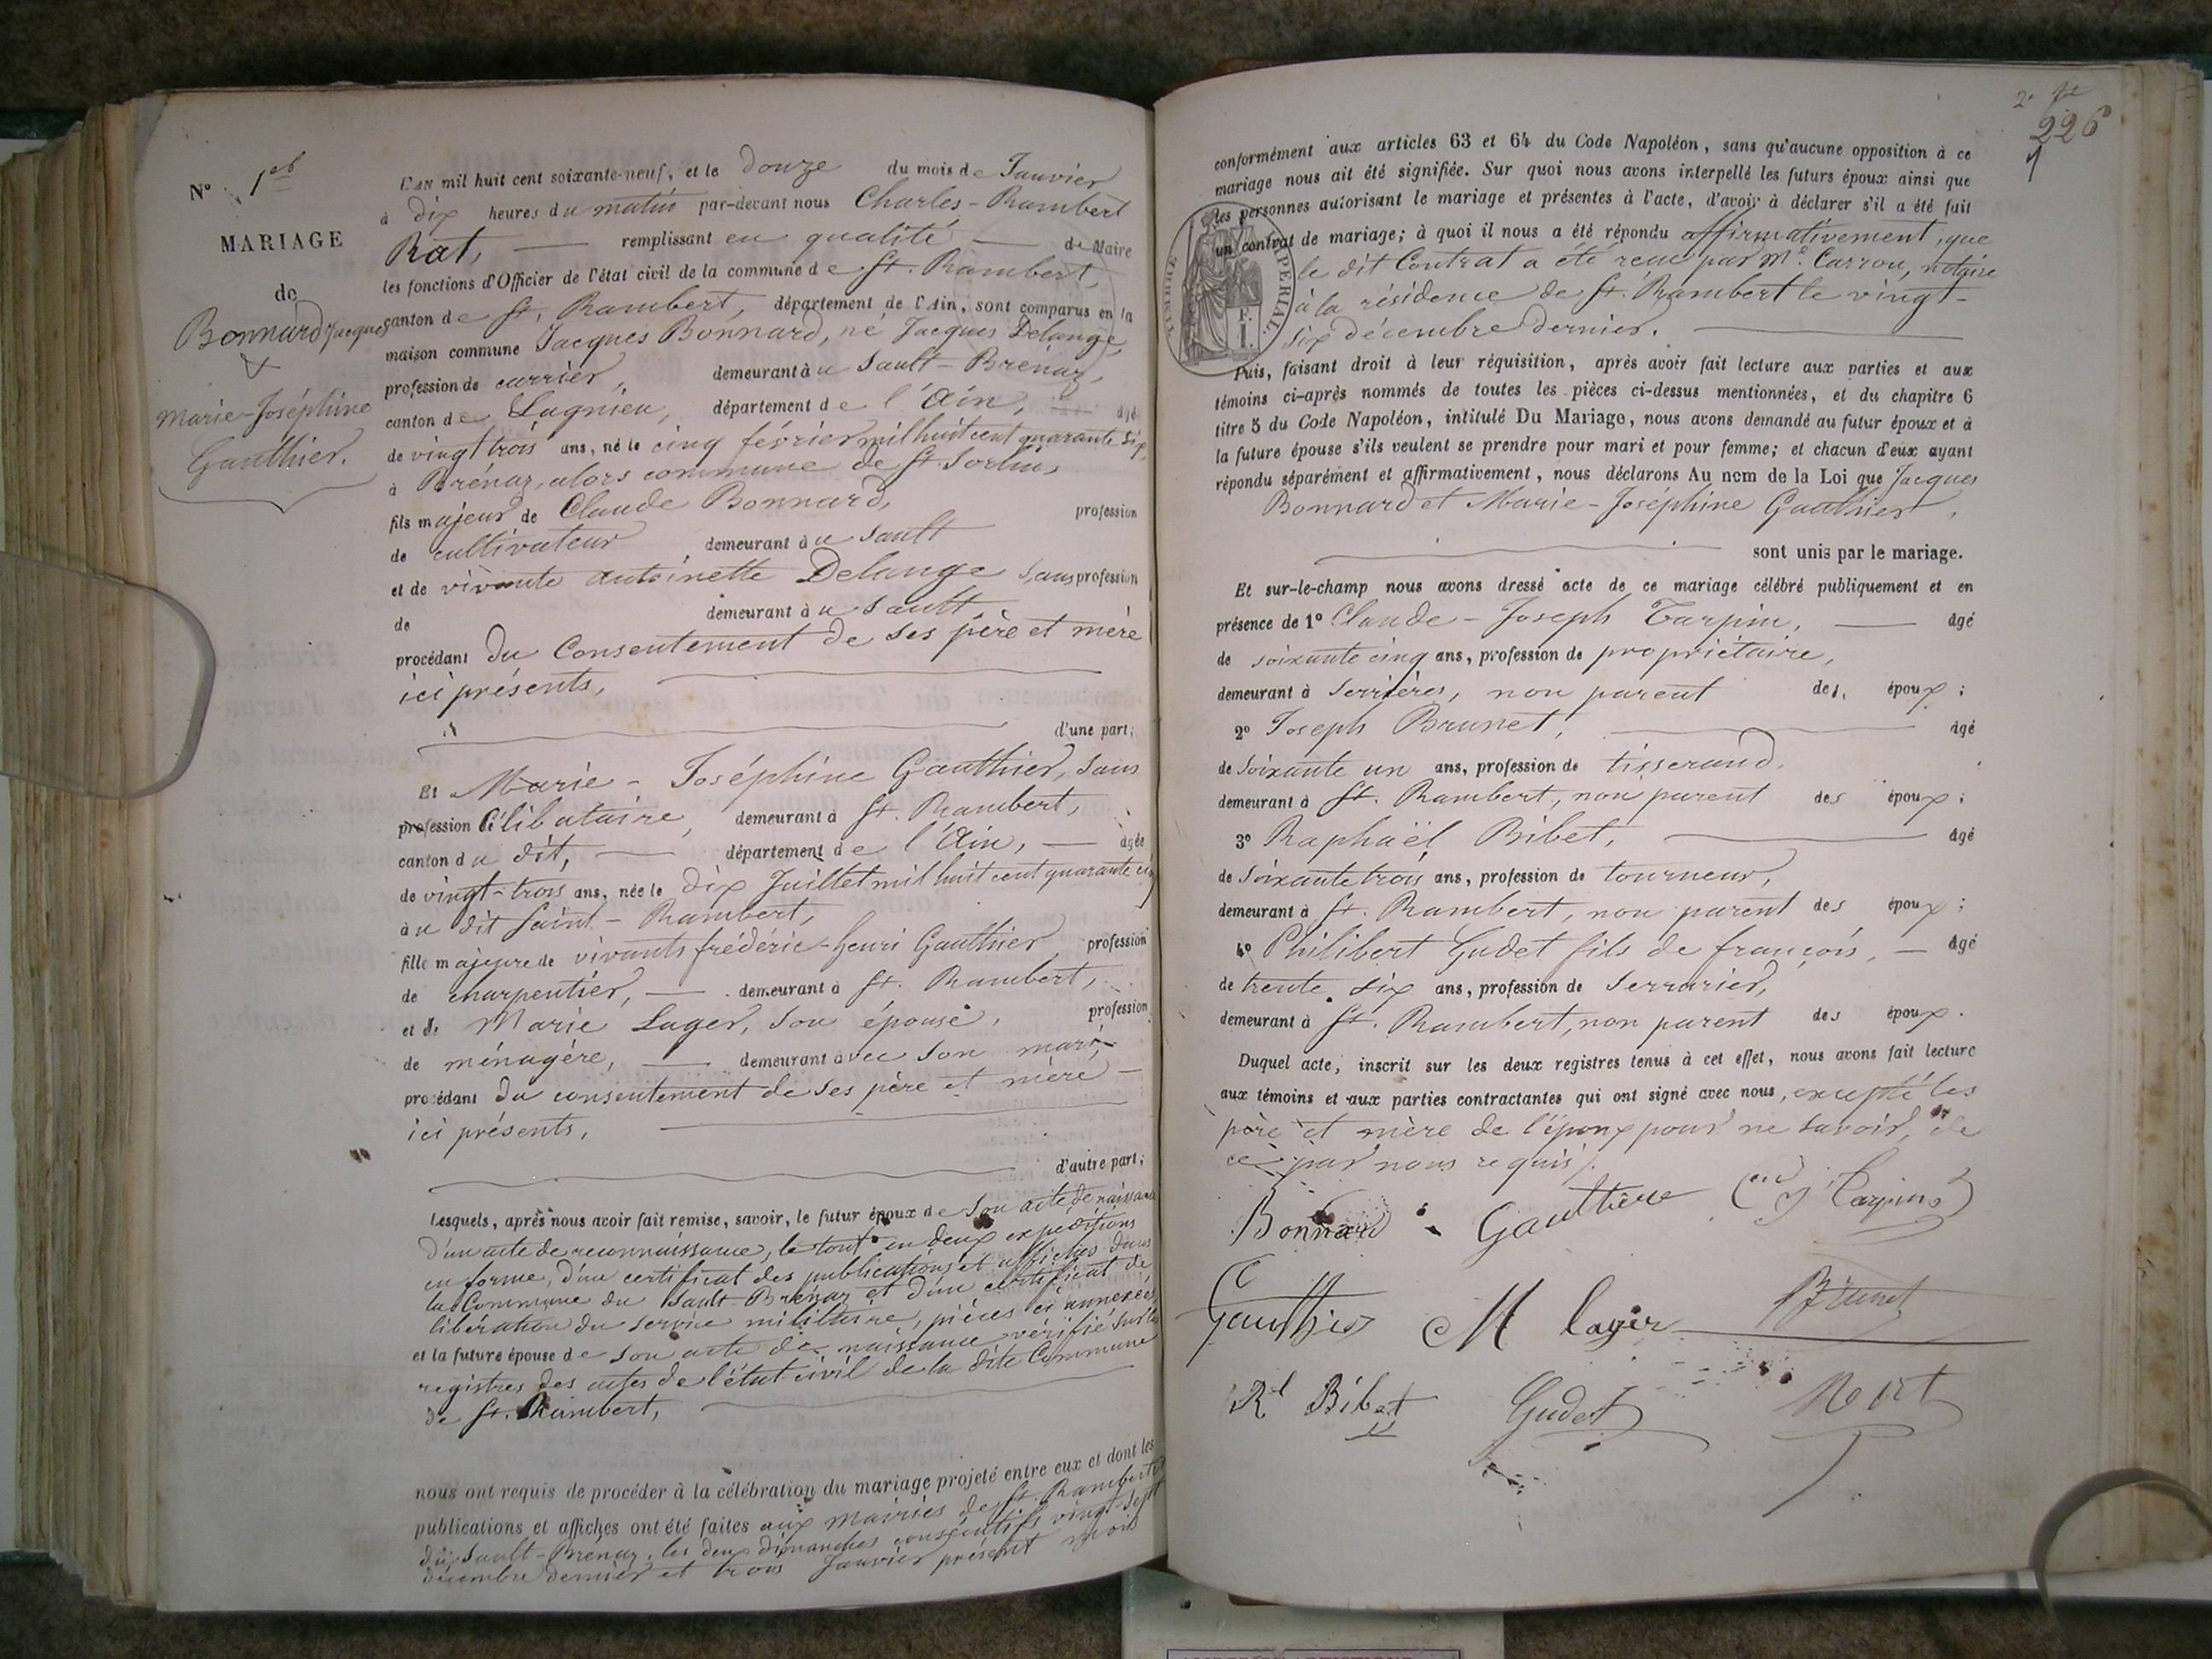 N° 1er
MARIAGE
de
Bonnard Jacques
&
Marie-Joséphine
Gauthier.
L'AN mil huit cent soixante-neuf, et le douze du mois de Janvier
à dix heures du matin par-devant nous Charles-Rambert
Rat, remplissant en qualité de Maire
les fonctions d'Officier de l'état civil de la commune de St. Rambert,
canton de St. Rambert, département de l'Ain, sont comparus en la
maison commune Jacques Bonnard, né Jacques Delange,
profession de carrier, demeurant à u Sault-Brénaz,
canton de Lagnieu, département de l'Ain, âgé
de vingt trois ans, né le cinq février mil huit cent quarante six,
à Brénaz, alors commune de St. Sorlin,
fils majeur de Claude Bonnard, profession
de cultivateur demeurant à u Sault
et de vivante Antoinette Delange sans profession
de demeurant à u Sault,
procédant du Consentement de ses père et mère
ici présents,
d'une part;
Et Marie-Joséphine Gauthier, sans
profession Célibataire, demeurant à St. Rambert,
canton du dit, département de l'Ain, âgée
de vingt-trois ans, née le dix Juillet mil huit cent quarante cinq
à u dit Saint-Rambert,
fille majeure de vivants frédéric-henri Gauthier profession
de charpentier, demeurant à St. Rambert,
et de Marie Lager, son épouse, profession
de ménagère, demeurant avec son mari,
procédant du consentement de ses père et mère
ici présents,
d'autre part;
Lesquels, après nous avoir fait remise, savoir, le futur époux de son acte de naissance
d'un acte de reconnaissance, le tout en deux expéditions
en forme, d'un certificat des publications et affiches dans
la Commune du Sault-Brénaz et d'un certificat de
libération du service militaire, pièces ci annexées
et la future épouse de son acte de naissance vérifié sur les
registres des actes de l'état civil de la dite Commune
de St. Rambert,
nous ont requis de procéder à la célébration du mariage projeté entre eux et dont les
publications et affiches ont été faites aux mairies de St. Rambert et
du Sault-Brénaz, les deux dimanches consécutifs vingt-sept
décembre dernier et trois Janvier présent mois
2e
226
conformément aux articles 63 et 64 du Code Napoléon, sans qu'aucune opposition à ce
mariage nous ait été signifiée. Sur quoi nous avons interpellé les futurs époux ainsi que
les personnes autorisant le mariage et présentes à l'acte, d'avoir à déclarer s'il a été fait
un contrat de mariage; à quoi il nous a été répondu affirmativement, que
le dit Contrat a été reçu par Me. Carrou, notaire
à la résidence de St. Rambert le vingt-
six décembre dernier.
TIMBRE IMPÉRIAL.
F. I.
Puis, faisant droit à leur réquisition, après avoir fait lecture aux parties et aux
témoins ci-après nommés de toutes les pièces ci-dessus mentionnées, et du chapitre 6
titre 5 du Code Napoléon, intitulé Du Mariage, nous avons demandé au futur époux et à
la future épouse s'ils veulent se prendre pour mari et pour femme; et chacun d'eux ayant
répondu séparément et affirmativement, nous déclarons Au nom de la Loi que Jacques
Bonnard et Marie-Joséphine Gauthier,
sont unis par le mariage.
Et sur-le-champ nous avons dressé acte de ce mariage célébré publiquement et en
présence de 1° Claude-Joseph Tarpin, âgé
de soixante cinq ans, profession de propriétaire,
demeurant à Serrières, non parent des époux;
2° Joseph Brunet, âgé
de soixante un ans, profession de tisserand.
demeurant à St. Rambert, non parent des époux;
3° Raphaël Bibet, âgé
de soixante trois ans, profession de tourneur,
demeurant à St. Rambert, non parent des époux;
4° Philibert Gudet fils de françois, âgé
de trente six ans, profession de Serrurier,
demeurant à St. Rambert, non parent des époux.
Duquel acte, inscrit sur les deux registres tenus à cet effet, nous avons fait lecture
aux témoins et aux parties contractantes qui ont signé avec nous, excepté les
père et mère de l'époux pour ne savoir, de
ce par nous requis.
Bonnard Gauthière Tarpin
Gauthier M lager Brunet
Rl Bibet Gudet Rat